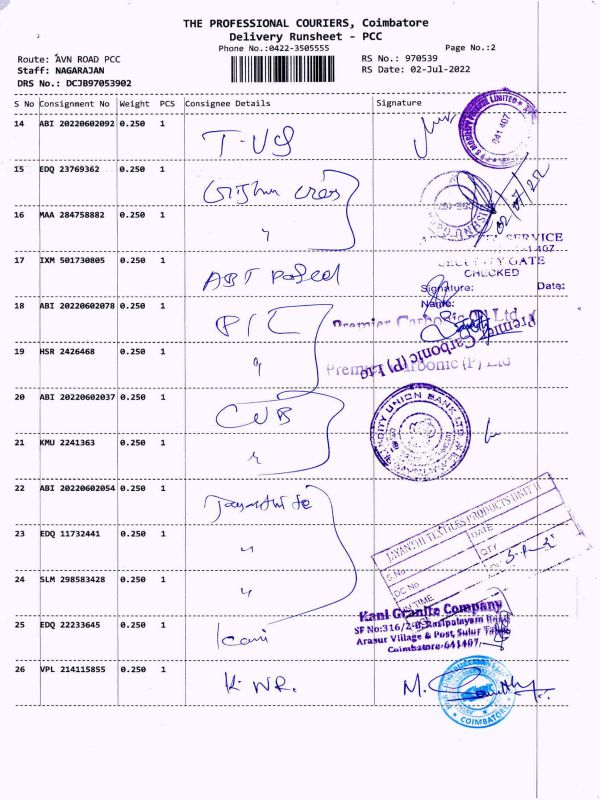 THE PROFESSIONAL COURIERS, Coimbatore
Delivery Runsheet - PCC
Phone No.:0422-3505555
Page No.:2
Route: AVN ROAD PCC
RS No.: 970539
Staff: NAGARAJAN
RS Date: 02-Jul-2022
DRS No.: DCJB97053902
S No Consignment No Weight PCS Consignee Details Signature
14 ABI 20220602092 0.250 1 T-VS
641 407
15 EDQ 23769362 0.250 1
02/07/22
16 MAA 284758882 0.250 1 "
SERVICE
17 IXM 501730805 0.250 1 ABT
SECURITY GATE
CHECKED
Signature: Date:
Name:
18 ABI 20220602078 0.250 1
Premier Carbonic (P) Ltd
Premier Carbonic (P) Ltd
19 HSR 2426468 0.250 1 "
Premier Carbonic (P) Ltd
20 ABI 20220602037 0.250 1 CUB
CITY UNION BANK LTD
21 KMU 2241363 0.250 1 "
22 ABI 20220602054 0.250 1
JAYANTHI TEXTILES PRODUCTS UNIT II
S.No DATE
DC No QTY
IN TIME
23 EDQ 11732441 0.250 1 "
24 SLM 298583428 0.250 1 "
Kani Granite Company
SF No:316/2-D, Rasipalayam Road
Arasur Village & Post, Sulur Taluk
Coimbatore-641407.
25 EDQ 22233645 0.250 1 Kani
26 VPL 214115855 0.250 1 K. WR.
M.
COIMBATORE